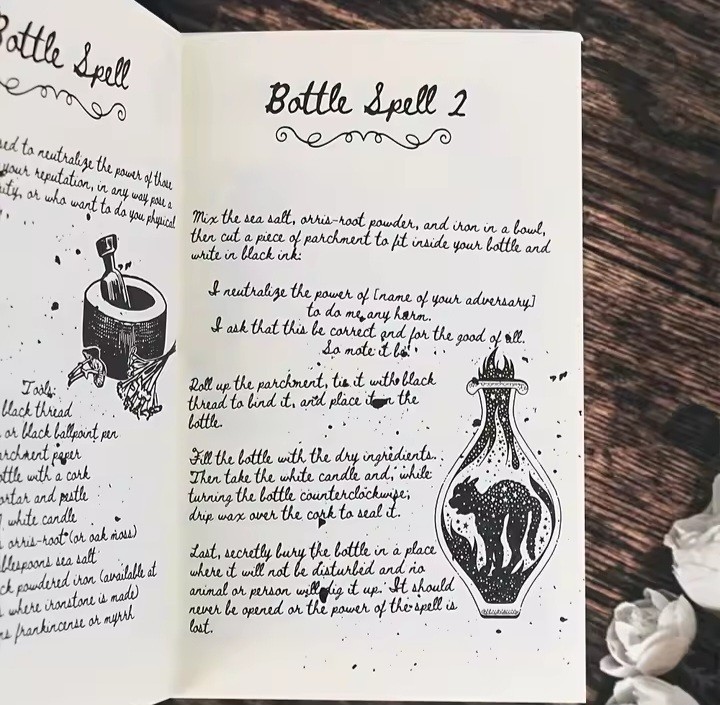 Bottle Spell
sed to neutralize the power of those
your reputation, in any way pose a
ity, or who want to do you physical
Tools:
black thread
or black ballpoint pen
archment paper
ottle with a cork
ortar and pestle
white candle
orris-root (or oak moss)
blespoons sea salt
ck powdered iron (available at
where ironstone is made)
ns frankincense or myrrh
Bottle Spell 2
Mix the sea salt, orris-root powder, and iron in a bowl,
then cut a piece of parchment to fit inside your bottle and
write in black ink:
I neutralize the power of [name of your adversary]
to do me any harm.
I ask that this be correct and for the good of all.
So mote it be.
Roll up the parchment, tie it with black
thread to bind it, and place it in the
bottle.
Fill the bottle with the dry ingredients.
Then take the white candle and, while
turning the bottle counterclockwise,
drip wax over the cork to seal it.
Last, secretly bury the bottle in a place
where it will not be disturbed and no
animal or person will dig it up. It should
never be opened or the power of the spell is
lost.